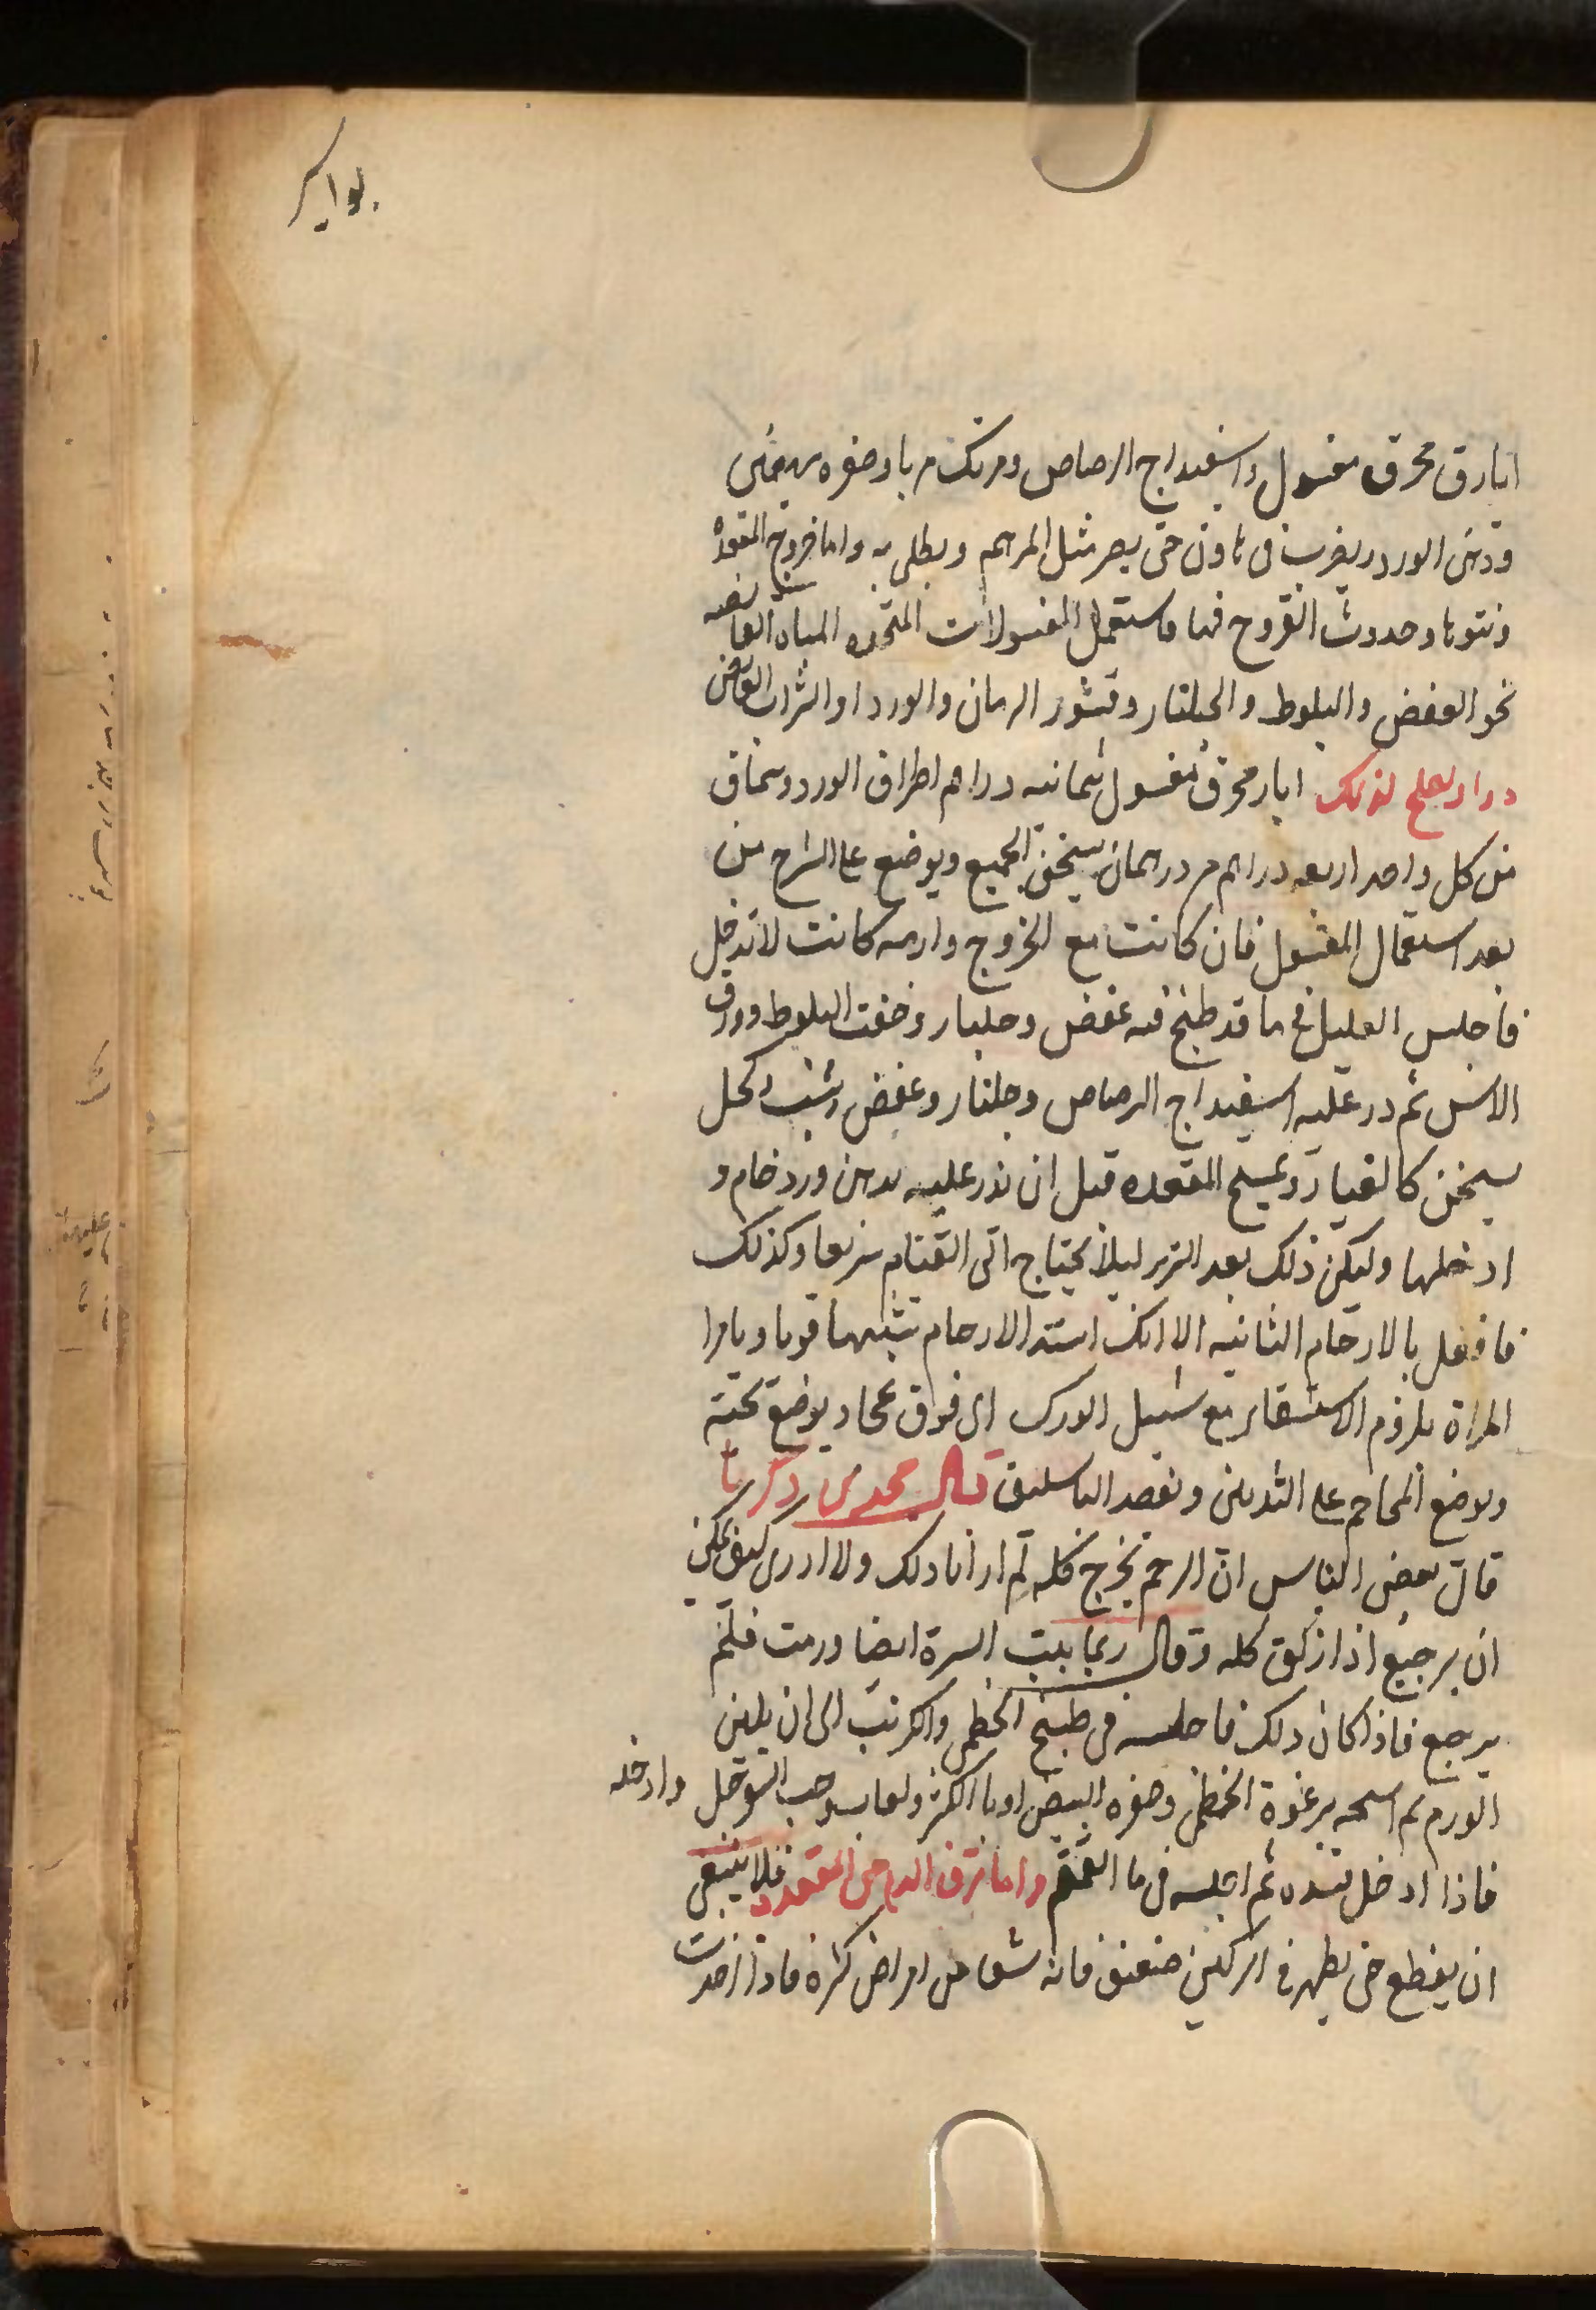 بواسير
ابارق محرق مغسول واسفيداج الرصاص ومرتك مربا وصفره بيضتين
ودهن الورد ريضرب فى هاون حتى يصير مثل المرهم ويطلى به واما خروج المقعدة
ونتوها وحدوث القروح فيها فاستعمل المغسولات المتخده المياه القابضه
نحو العفص والبلوط والجلنار وقشور الرمان والورد او الشراب القابض
دوا يصلح لذلك ابار محرق مغسول ثمانيه دراهم اطراف الورد وسماق
من كل واحد اربعه دراهم مر درهمان يسخن الجميع ويوضع على الشرج من
بعد استعمال المغسول فان كانت مع الخروج وارمه كانت لا تدخل
فاجلس العليل فى ما قد طبخ فيه عفص وجلنار وخفت البلوط وورق
الاس ثم در عليه اسفيداج الرصاص وجلنار وعفص وشب وكحل
يسخن كالغبار وتمسح المقعده قبل ان تذر عليه بدهن ورد خام و
ادخلها وليكن ذلك بعد التبرز ليلا يحتاج الى القيام سريعا وكذلك
فافعل بالارحام الثانيه الا انك استد الارحام تشيلها قويا وتامر
المراة بلزوم الاستلقا مع شيل الورك الى فوق بمخاد يوضع تحته
ويوضع المحاجم على الثديين وتفصد الباسليق قال محمد بن زكريا
قال بعض الناس ان الرحم تخرج كله لم ار انا ذلك ولا ادرى كيف يمكن
ان يرجع اذا زلق كله وقال ربما السرة ايضا ورمت فلم
يرجع فاذا كان ذلك فاجلسه فى طبيخ الخطمى والكرنب الى ان يلين
الورم ثم امسحه برغوة الخطمى وصفره البيض اوبا ولعاب حب السفرجل وادخله
فاذا ادخل فشده ثم اجلسه فى ما القمقم واما نزف الدم من المقعدة فلا ينبغى
ان يقطع حتى يظهر فى الركبتين ضعف فانه شفا من امراض كثره فاذا اخدت